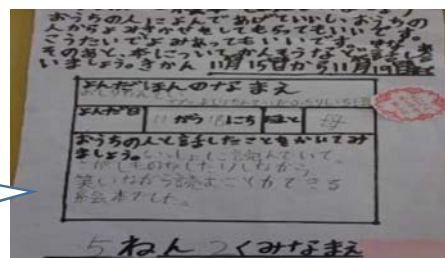 おうちの人によんであげてもいいし、おうちの
人からよみきかせをしてもらってもいいです。
こうたいでよみあってもいいです。
そのあと、本についてかんそうなどを話し合
いましょう。きかん 11月15日から11月19日まで
よんだほんのなまえ
よんだ日 11がつ18にち だれと 母
おうちの人と話したことをかいてみ
ましょう。いっしょに読んでいて、
さがしものをしたりしながら、
笑いながら読むことができる
絵本でした。
5ねん2くみなまえ